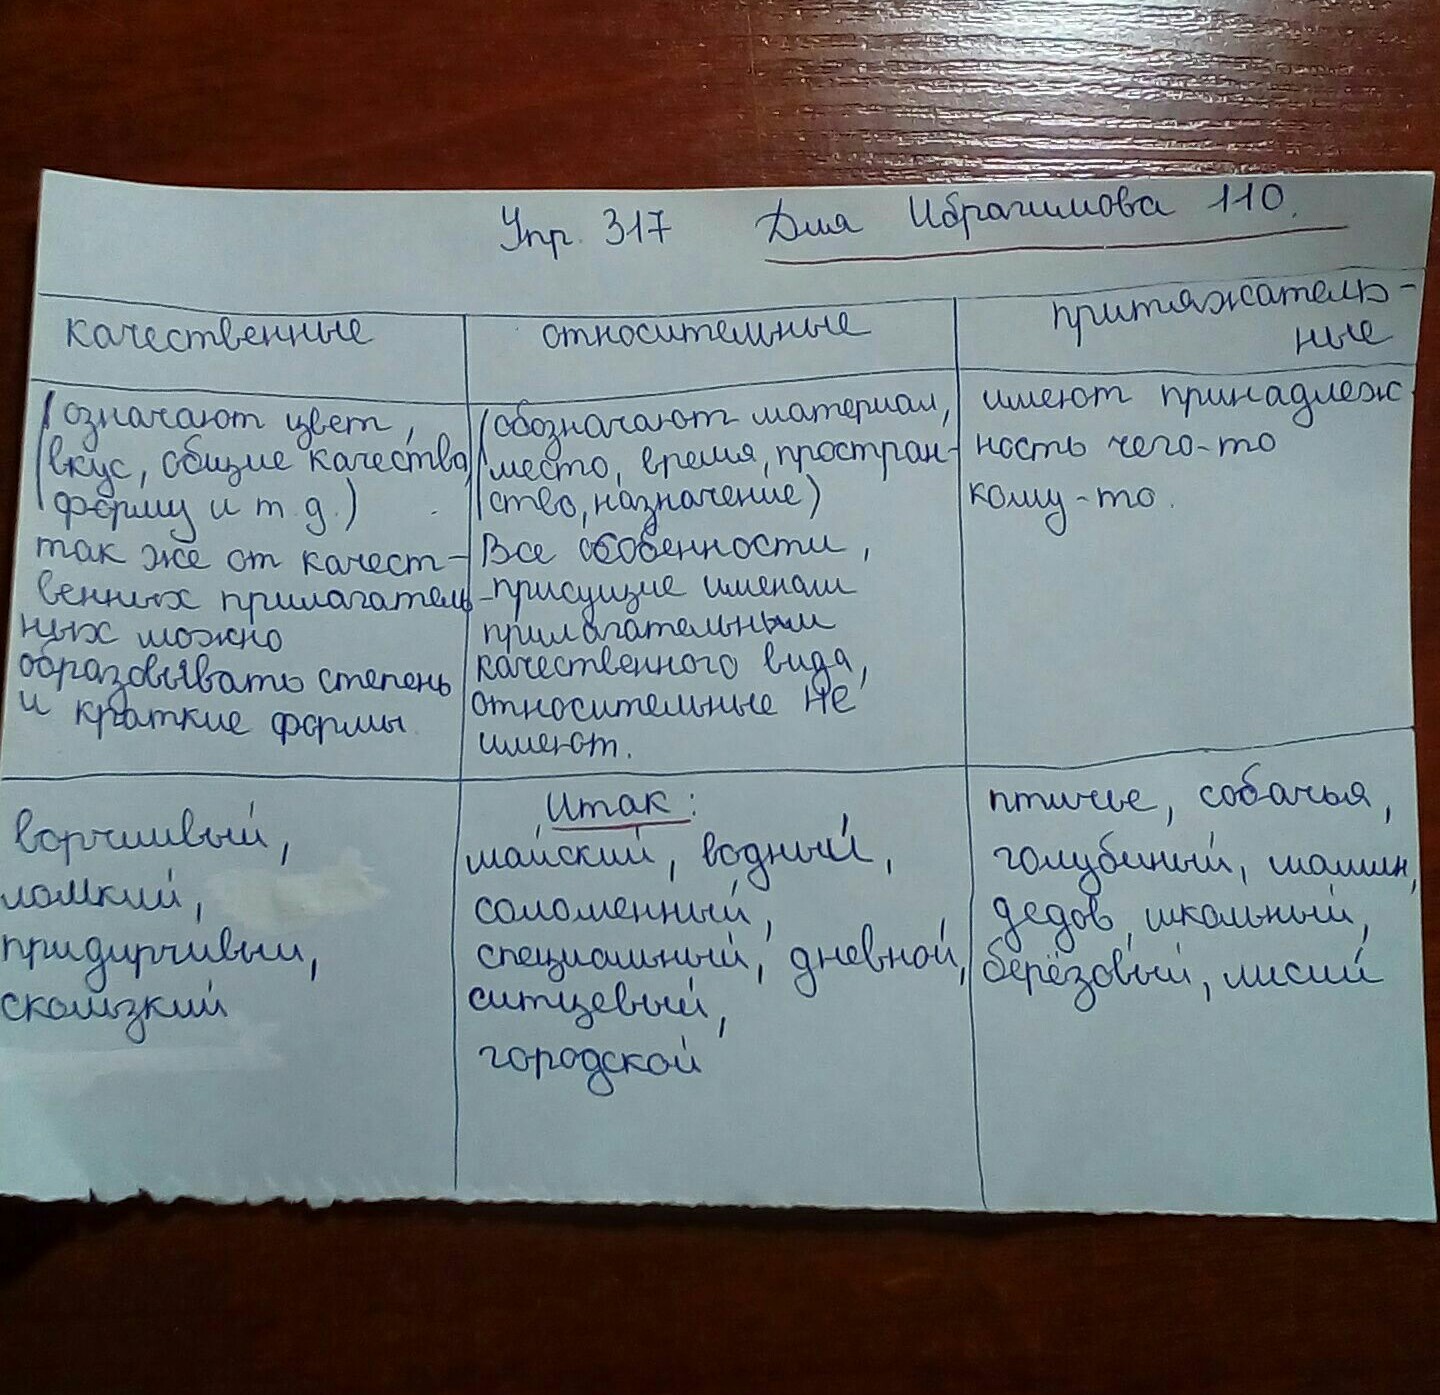 Упр. 317 Для Ибрагимова 110.
качественные
относительные
притяжатель-
ные
(означают цвет,
вкус, общие качества,
форму и т.д.)
так же от качест-
венных прилагатель-
ных можно
образовывать степень
и краткие формы.
(обозначают материал,
место, время, простран-
ство, назначение)
Все особенности,
присущие именам
прилагательным
качественного вида,
относительные НЕ
имеют.
имеют принадлеж
ность чего-то
кому-то.
ворчливый,
ломкий,
придирчивый,
скользкий
Итак:
майский, водный,
соломенный,
специальный, дневной,
ситцевый,
городской
птичье, собачья,
голубиный, мамин,
дедов, школьный,
берёзовый, лисий